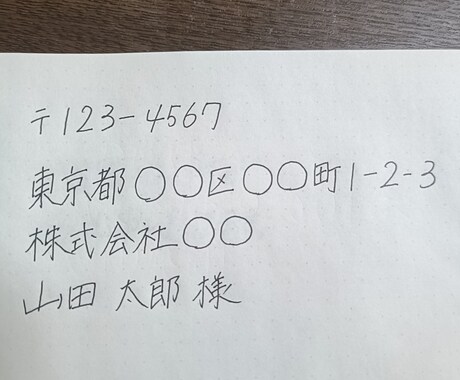 〒123-4567
東京都〇〇区〇〇町1-2-3
株式会社〇〇
山田 太郎 様